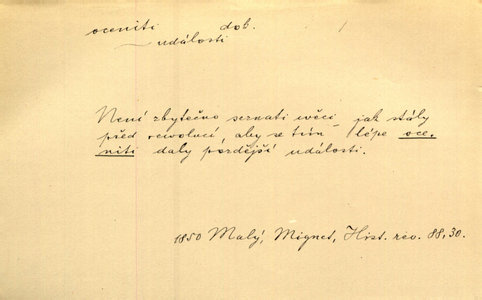 oceniti dob.
události
Není zbytečno seznati věci jak stály
před rewolucí, aby se tím lépe oce-
niti daly pozdější události.
1850 Malý, Mignet, Hist. rev. 88,30.